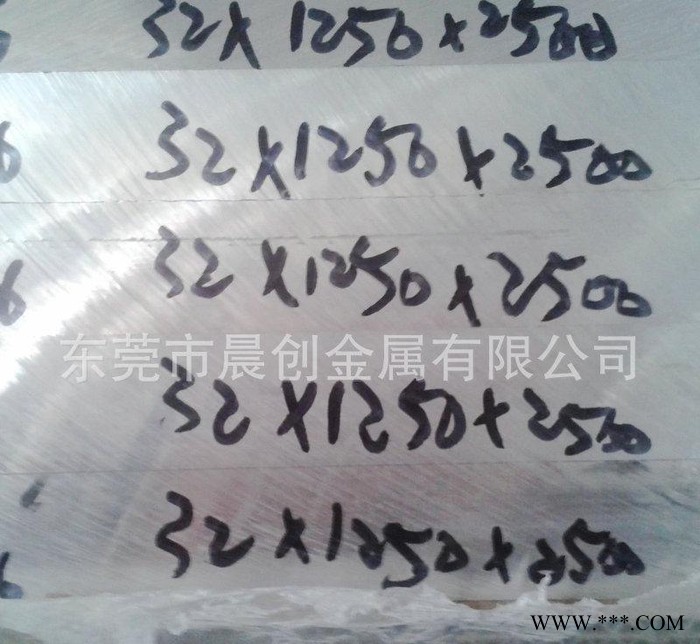 32×1250×2500
6 32×1250×2500
6 32×1250×2500
东莞市晨创金属有限公司
32×1250×2500
6 32×1250×2500
WWW.***.COM